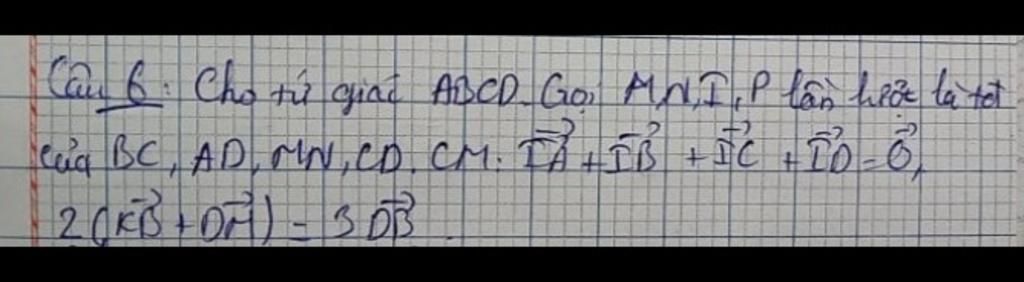 Câu 6: Cho tứ giác ABCD. Gọi M,N,I,P lần lượt là tđ
của BC, AD, MN, CD. CM: IA→ + IB→ + IC→ + ID→ = O→,
2(KB→ + DM→) = 3DB→.